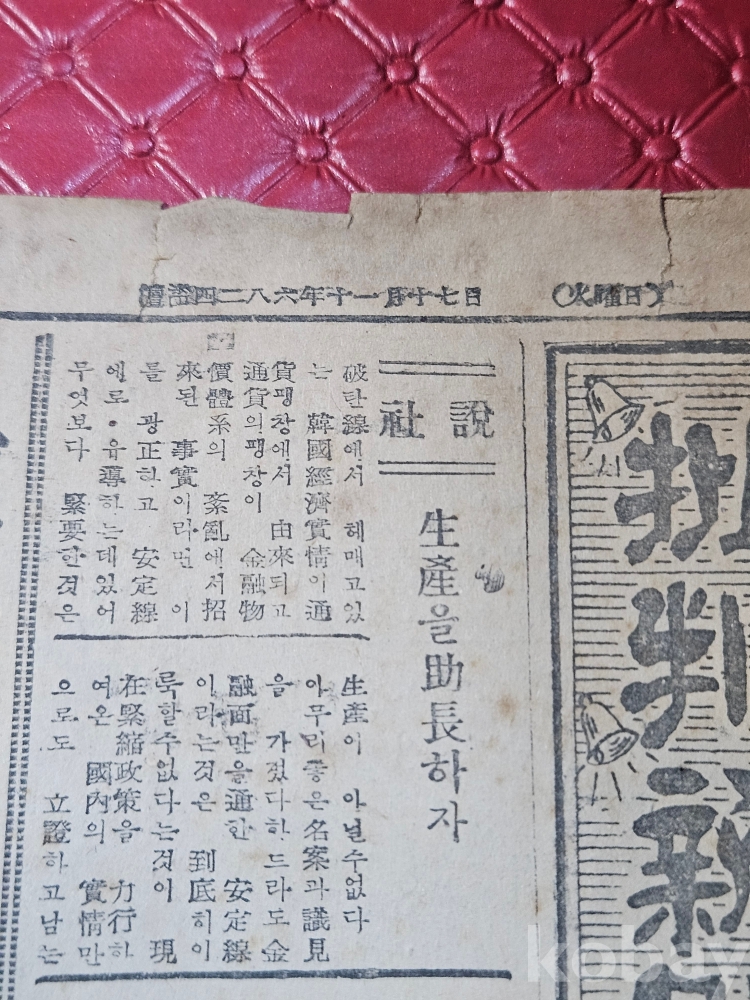 檀紀四二八六年十一月十七日 (火曜日)
批判新
社說
生產을助長하자
破탄線에서 헤매고있
는 韓國經濟實情이通
貨팽창에서 由來되고
通貨의팽창이 金融物
價體系의 紊亂에서招
來된 事實이라면 이
를 광正하고 安定線
에로・유導하는데있어
무엇보다 緊要한것은
生産이 아닐수없다
아무리좋은名案과議見
을 가젔다한드라도金
融面만을通한 安定線
이라는것은 到底히이
룩할수없다는것이 現
在緊縮政策을 力行하
여온 國內의 實情만
으로도 立證하고남는
kobay